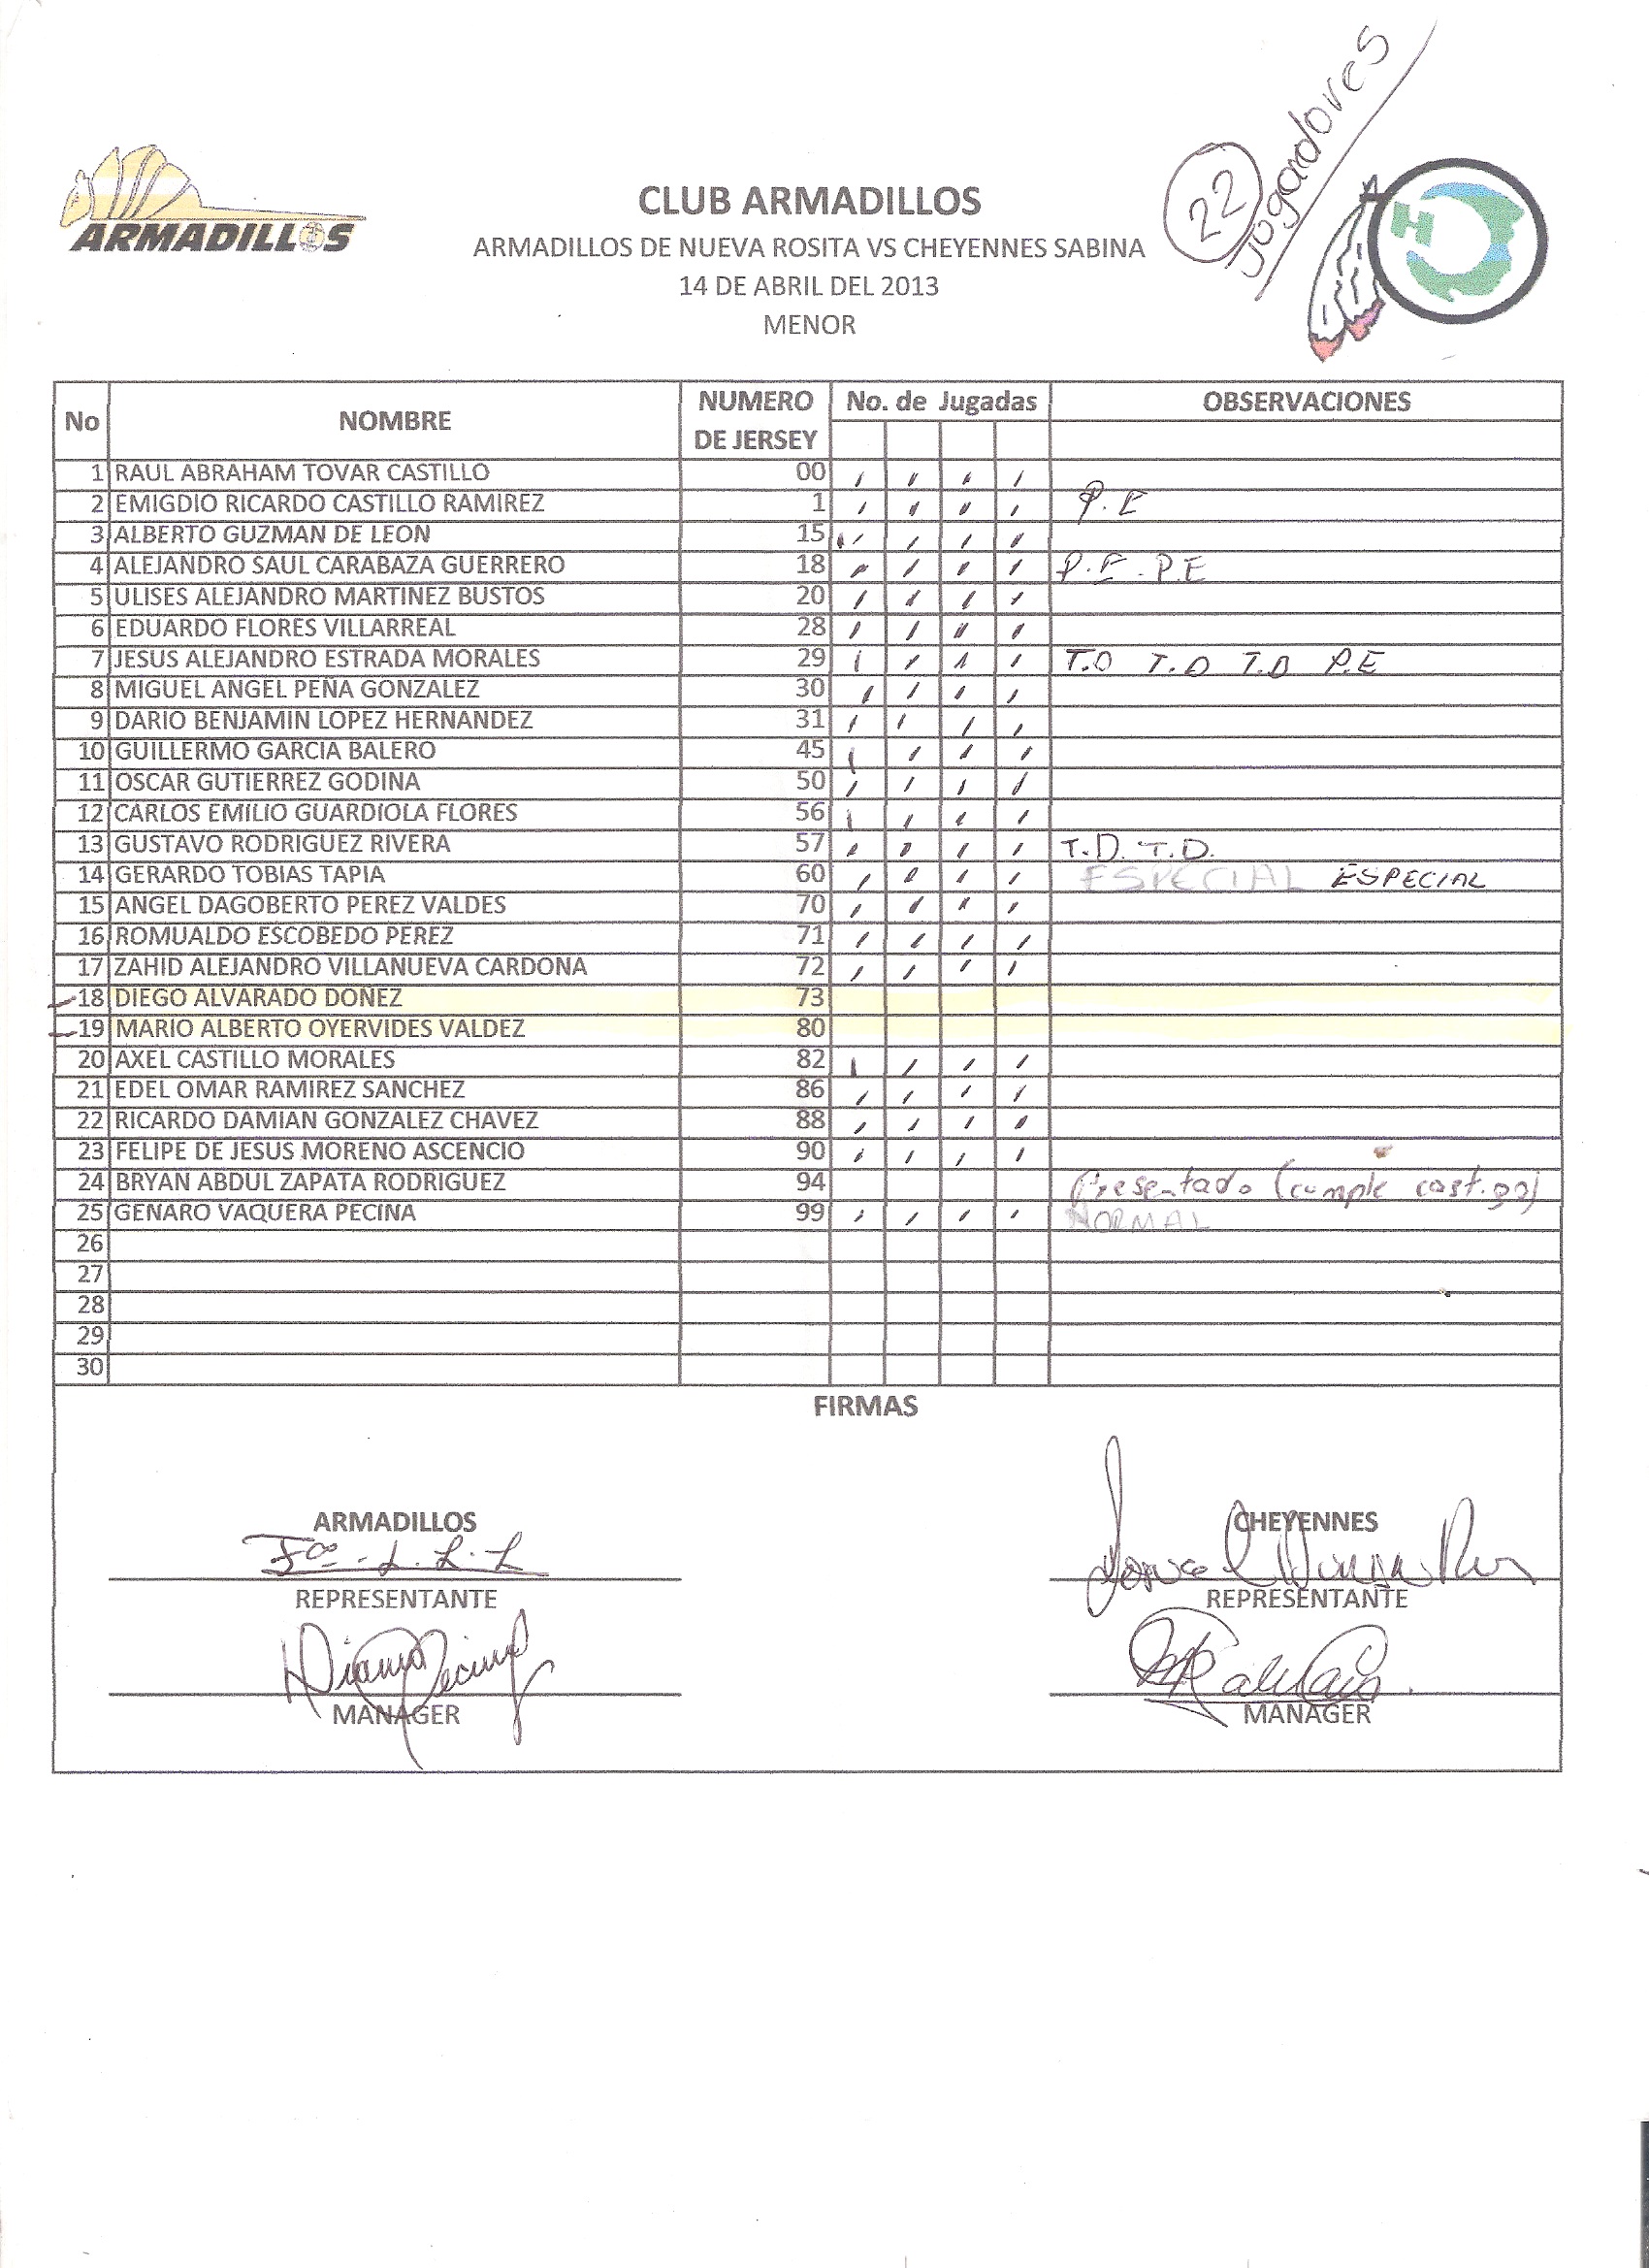 22 Jugadores
ARMADILLOS
CLUB ARMADILLOS
ARMADILLOS DE NUEVA ROSITA VS CHEYENNES SABINA
14 DE ABRIL DEL 2013
MENOR
No NOMBRE NUMERO DE JERSEY No. de Jugadas OBSERVACIONES
1 RAUL ABRAHAM TOVAR CASTILLO 00 / / / /
2 EMIGDIO RICARDO CASTILLO RAMIREZ 1 / / / / P.E
3 ALBERTO GUZMAN DE LEON 15 / / / /
4 ALEJANDRO SAUL CARABAZA GUERRERO 18 / / / / P.E. P.E
5 ULISES ALEJANDRO MARTINEZ BUSTOS 20 / / / /
6 EDUARDO FLORES VILLARREAL 28 / / / /
7 JESUS ALEJANDRO ESTRADA MORALES 29 / / / / T.D T.D T.D P.E
8 MIGUEL ANGEL PEÑA GONZALEZ 30 / / / /
9 DARIO BENJAMIN LOPEZ HERNANDEZ 31 / / / /
10 GUILLERMO GARCIA BALERO 45 / / / /
11 OSCAR GUTIERREZ GODINA 50 / / / /
12 CARLOS EMILIO GUARDIOLA FLORES 56 / / / /
13 GUSTAVO RODRIGUEZ RIVERA 57 / / / / T.D. T.D.
14 GERARDO TOBIAS TAPIA 60 / / / / ESPECIAL ESPECIAL
15 ANGEL DAGOBERTO PEREZ VALDES 70 / / / /
16 ROMUALDO ESCOBEDO PEREZ 71 / / / /
17 ZAHID ALEJANDRO VILLANUEVA CARDONA 72 / / / /
18 DIEGO ALVARADO DOÑEZ 73
19 MARIO ALBERTO OYERVIDES VALDEZ 80
20 AXEL CASTILLO MORALES 82 / / / /
21 EDEL OMAR RAMIREZ SANCHEZ 86 / / / /
22 RICARDO DAMIAN GONZALEZ CHAVEZ 88 / / / /
23 FELIPE DE JESUS MORENO ASCENCIO 90 / / / /
24 BRYAN ABDUL ZAPATA RODRIGUEZ 94 Presentado (cumple castigo)
25 GENARO VAQUERA PECINA 99 / / / / NORMAL
26
27
28
29
30
FIRMAS
ARMADILLOS CHEYENNES
REPRESENTANTE REPRESENTANTE
MANAGER MANAGER